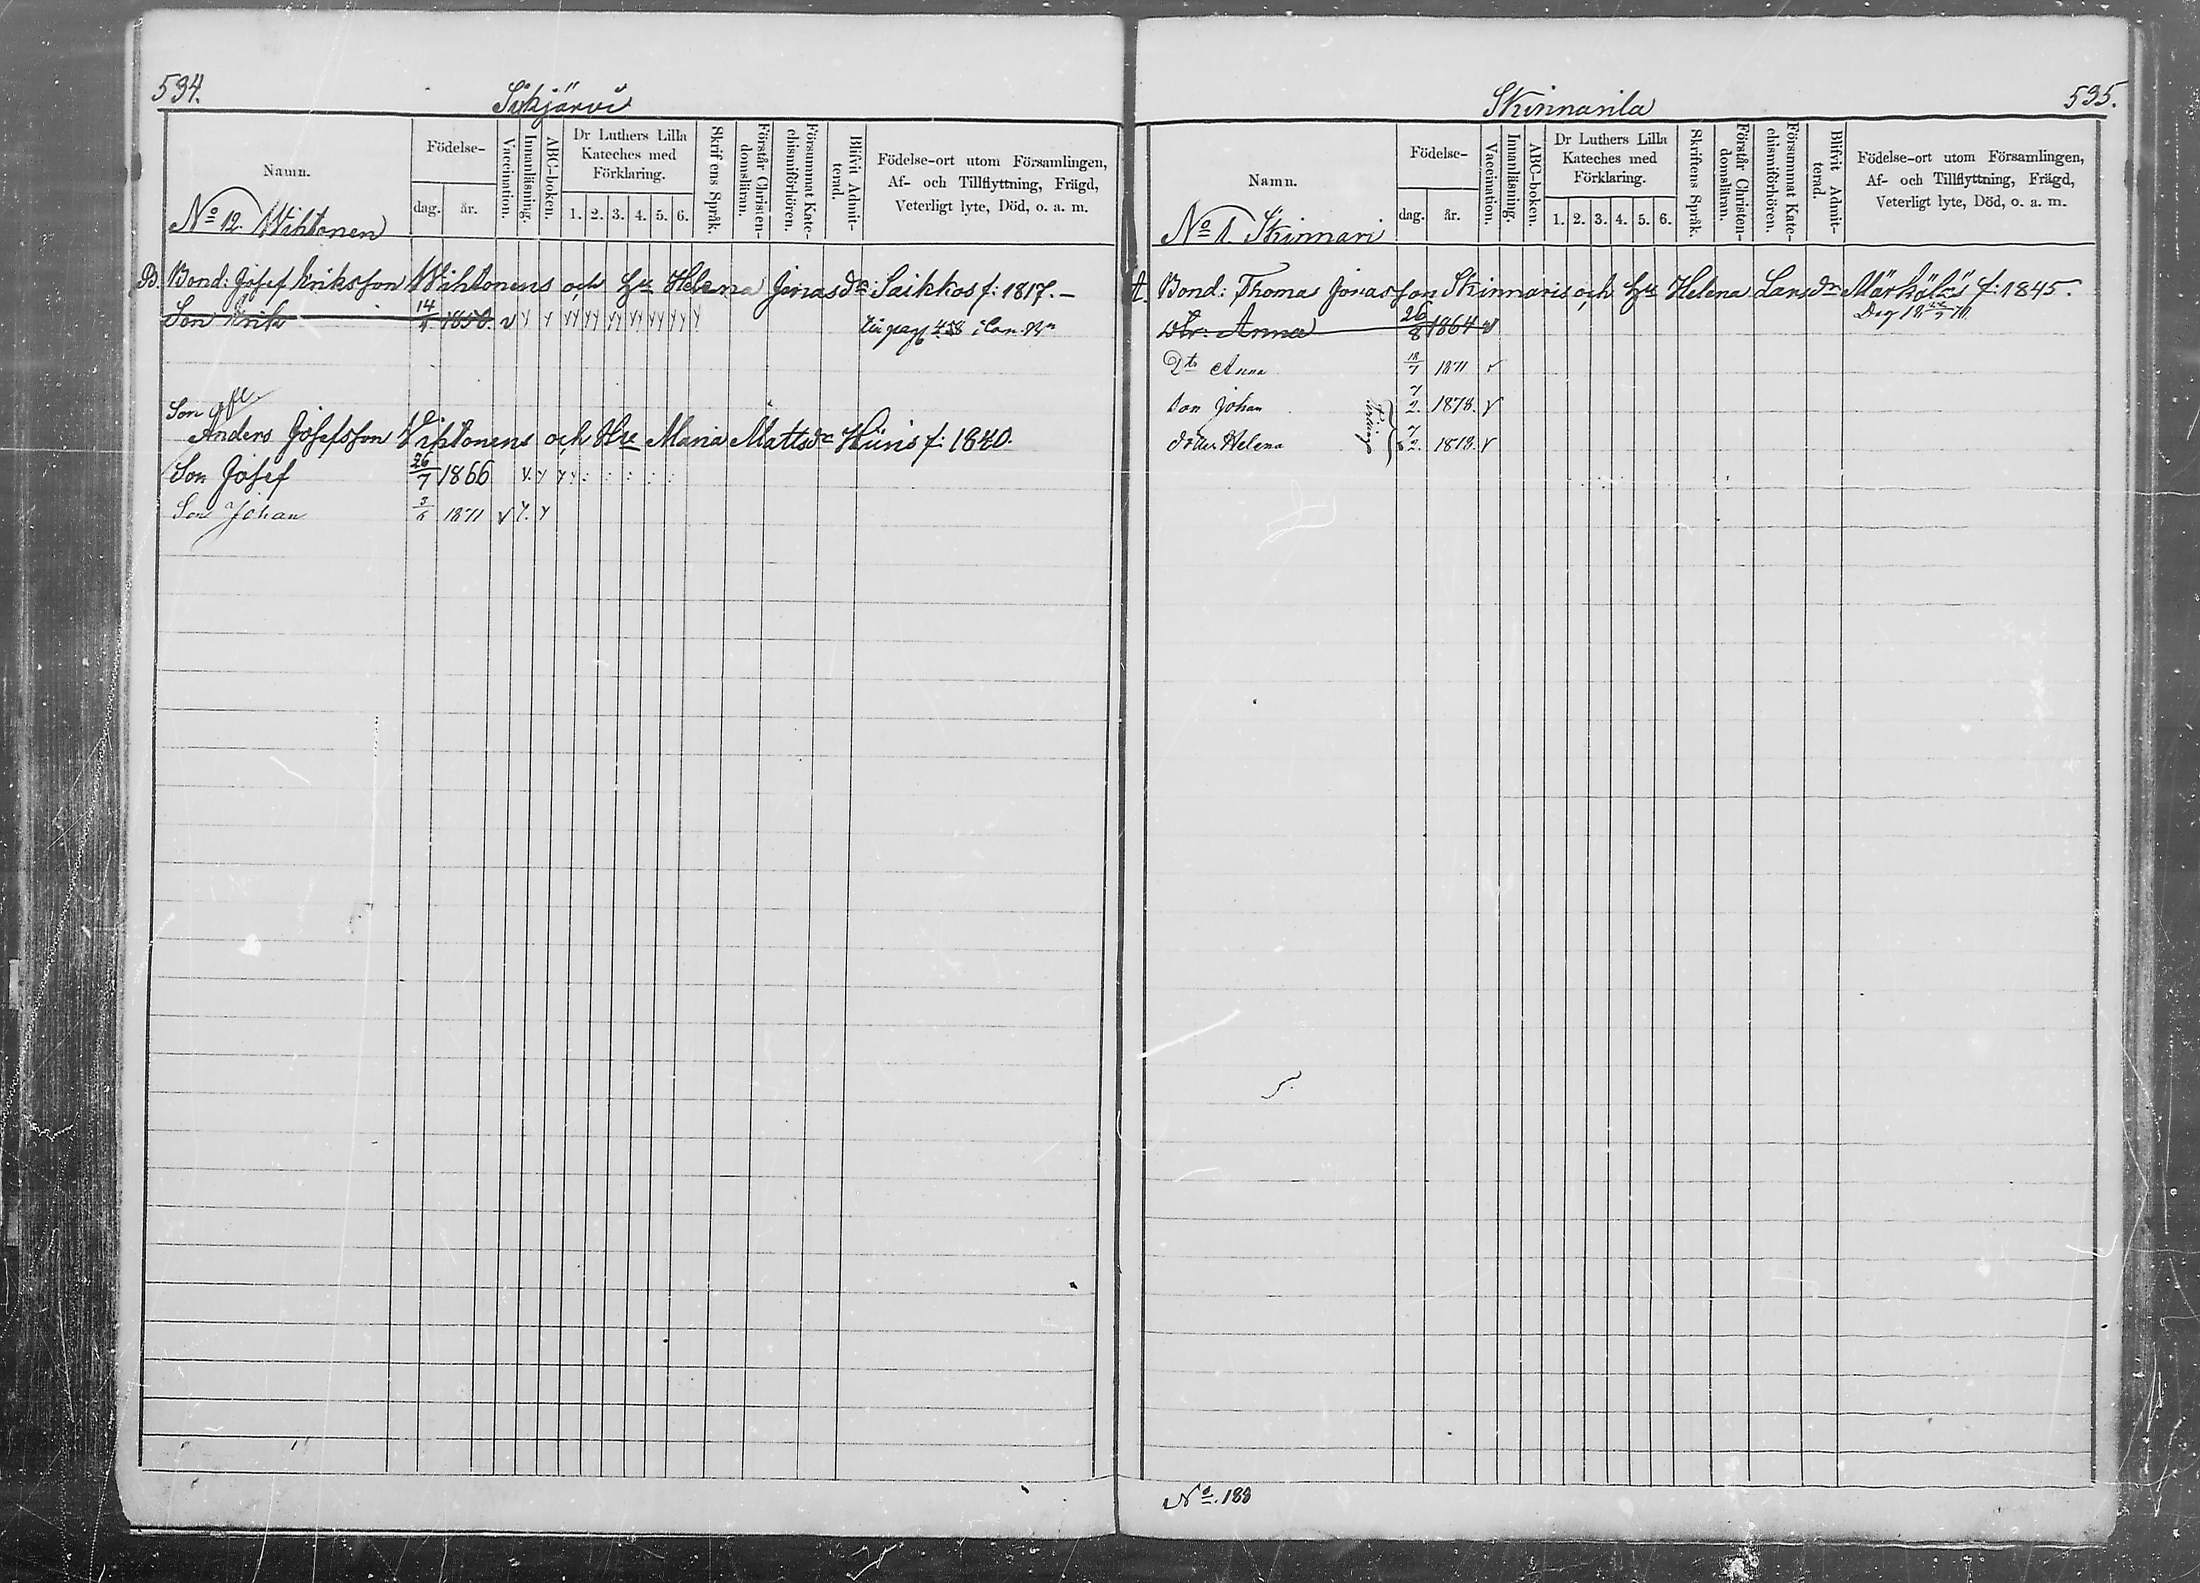 534.
Sikjärvi
Namn.
Födelse-
dag.
år.
Vaccination.
Innanläsning.
ABC-boken.
Dr Luthers Lilla
Kateches med
Förklaring.
1. 2. 3. 4. 5. 6.
Skriftens Språk.
Förstår Christen-
domsläran.
Försummat Kate-
chismiförhören.
Blifvit Admit-
terad.
Födelse-ort utom Församlingen,
Af- och Tillflyttning, Frägd,
Veterligt lyte, Död, o. a. m.
No 12. Wihtonen
B. Bond: Josef Eriksson Wihtonens och Hu Helena Jonasdr Saikkos f: 1817. –
Son Erik 14 1850. v
pag 458
Son
Anders Josefsson Wihtonens och Hu Maria Mattsdr f: 1840.
Son Josef 26/7 1866
Son Johan 3/6 1871 v
Skinnarila
535.
Namn.
Födelse-
dag.
år.
Vaccination.
Innanläsning.
ABC-boken.
Dr Luthers Lilla
Kateches med
Förklaring.
1. 2. 3. 4. 5. 6.
Skriftens Språk.
Förstår Christen-
domsläran.
Försummat Kate-
chismiförhören.
Blifvit Admit-
terad.
Födelse-ort utom Församlingen,
Af- och Tillflyttning, Frägd,
Veterligt lyte, Död, o. a. m.
No 1. Skinnari
A. Bond: Thomas Jonasson Skinnaris och Hu Helena Larsdr f: 1845.
Dtr: Anna 26/8 1864 v
Dtr Anna 18/7 1871 v
Son Johan 7/2. 1878. v
Helena 7/2. 1878. v
No. 188